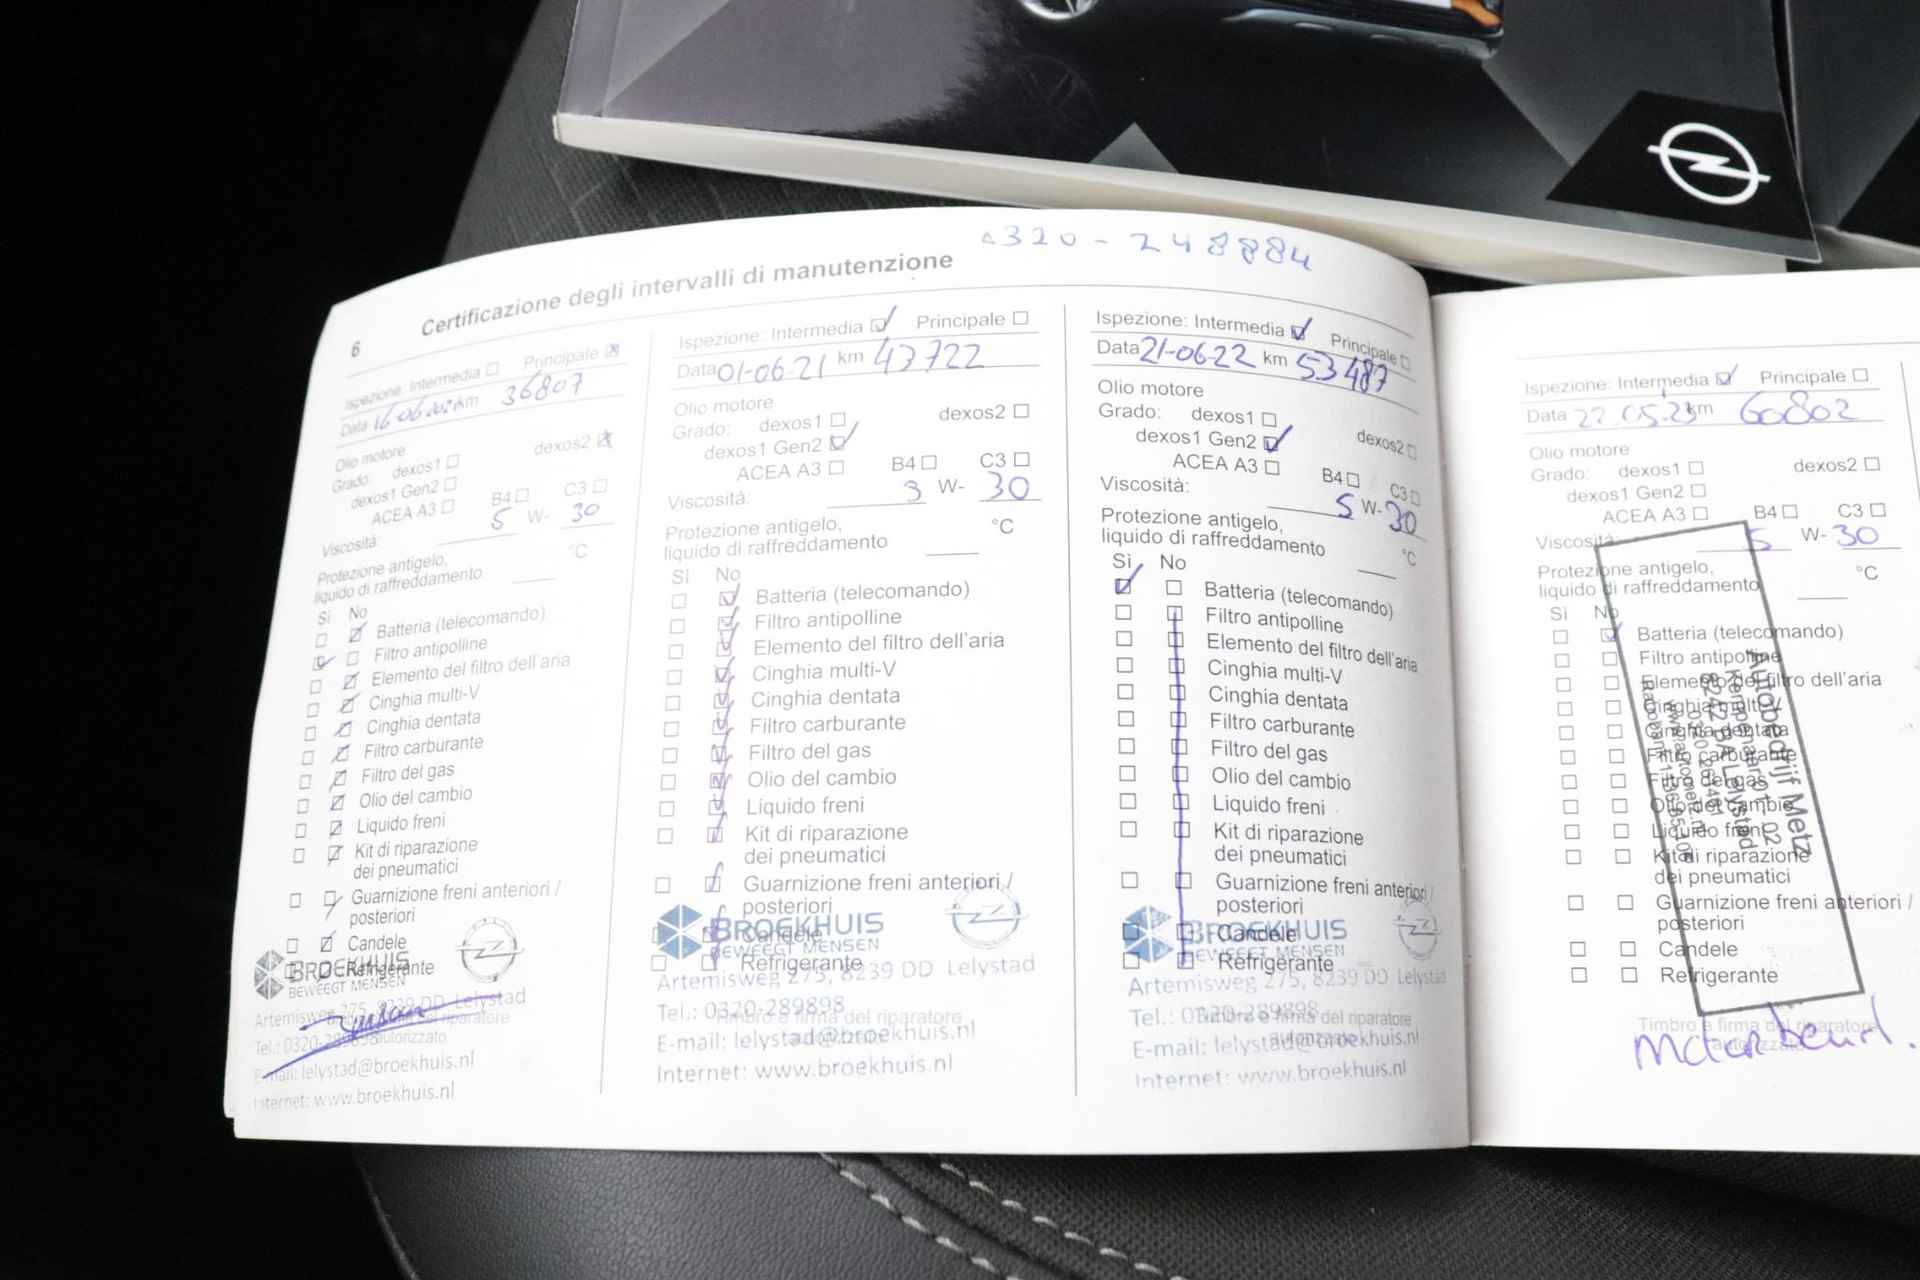 0320-248884
6 Certificazione degli intervalli di manutenzione
Ispezione: Intermedia Principale
Data 16-06-2020 km 36807
Olio motore
Grado: dexos1 dexos2
dexos1 Gen2
ACEA A3 B4 C3
Viscosità: 5 W- 30
Protezione antigelo, °C
liquido di raffreddamento
Sì No
Batteria (telecomando)
Filtro antipolline
Elemento del filtro dell'aria
Cinghia multi-V
Cinghia dentata
Filtro carburante
Filtro del gas
Olio del cambio
Liquido freni
Kit di riparazione
dei pneumatici
Guarnizione freni anteriori /
posteriori
Candele
Refrigerante
BROEKHUIS
BEWEEGT MENSEN
Artemisweg 275, 8239 DD Lelystad
Tel.: 0320-289898
E-mail: lelystad@broekhuis.nl
Internet: www.broekhuis.nl
Ispezione: Intermedia Principale
Data 01-06-21 km 47722
Olio motore
Grado: dexos1 dexos2
dexos1 Gen2
ACEA A3 B4 C3
Viscosità: W- 30
Protezione antigelo, °C
liquido di raffreddamento
Sì No
Batteria (telecomando)
Filtro antipolline
Elemento del filtro dell'aria
Cinghia multi-V
Cinghia dentata
Filtro carburante
Filtro del gas
Olio del cambio
Liquido freni
Kit di riparazione
dei pneumatici
Guarnizione freni anteriori /
posteriori
Candele
Refrigerante
BROEKHUIS
BEWEEGT MENSEN
Artemisweg 275, 8239 DD Lelystad
Tel.: 0320-289898
Timbro e firma del riparatore
autorizzato
E-mail: lelystad@broekhuis.nl
Internet: www.broekhuis.nl
Ispezione: Intermedia Principale
Data 21-06-22 km 53487
Olio motore
Grado: dexos1 dexos2
dexos1 Gen2
ACEA A3 B4 C3
Viscosità: 5 W- 30
Protezione antigelo, °C
liquido di raffreddamento
Sì No
Batteria (telecomando)
Filtro antipolline
Elemento del filtro dell'aria
Cinghia multi-V
Cinghia dentata
Filtro carburante
Filtro del gas
Olio del cambio
Liquido freni
Kit di riparazione
dei pneumatici
Guarnizione freni anteriori /
posteriori
Candele
Refrigerante
BROEKHUIS
BEWEEGT MENSEN
Artemisweg 275, 8239 DD Lelystad
Tel.: 0320-289898
Timbro e firma del riparatore
autorizzato
E-mail: lelystad@broekhuis.nl
Internet: www.broekhuis.nl
Ispezione: Intermedia Principale
Data 22.05.23 km 60802
Olio motore
Grado: dexos1 dexos2
dexos1 Gen2
ACEA A3 B4 C3
Viscosità: 5 W- 30
Protezione antigelo, °C
liquido di raffreddamento
Sì No
Batteria (telecomando)
Filtro antipolline
Elemento del filtro dell'aria
Cinghia multi-V
Cinghia dentata
Filtro carburante
Filtro del gas
Olio del cambio
Liquido freni
Kit di riparazione
dei pneumatici
Guarnizione freni anteriori /
posteriori
Candele
Refrigerante
Autobedrijf Metz
8242 BA Lelystad
Timbro e firma del riparatore
autorizzato
Motorbeurt.